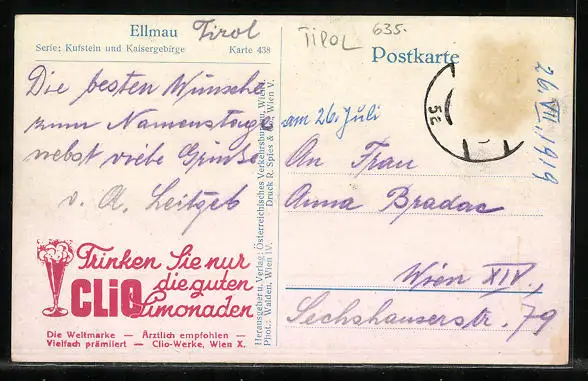 Ellmau Tirol
Serie: Kufstein und Kaisergebirge Karte 438
Die besten Wünsche
zum Namenstage
nebst viele Grüße
v. A. Leitgeb
Trinken Sie nur
die guten
CLIO Limonaden
Die Weltmarke — Ärztlich empfohlen —
Vielfach prämiiert — Clio-Werke, Wien X.
Herausgeber u. Verlag: Österreichisches Verkehrsbureau, Wien I.
Phot.: Walden, Wien IV. Druck R. Spies & Co., Wien V.
TIPOL 635.
Postkarte
52
26. VII. 1919
am 26. Juli
An Frau
Anna Bradac
Wien XIV.,
Sechshauserstr. 79